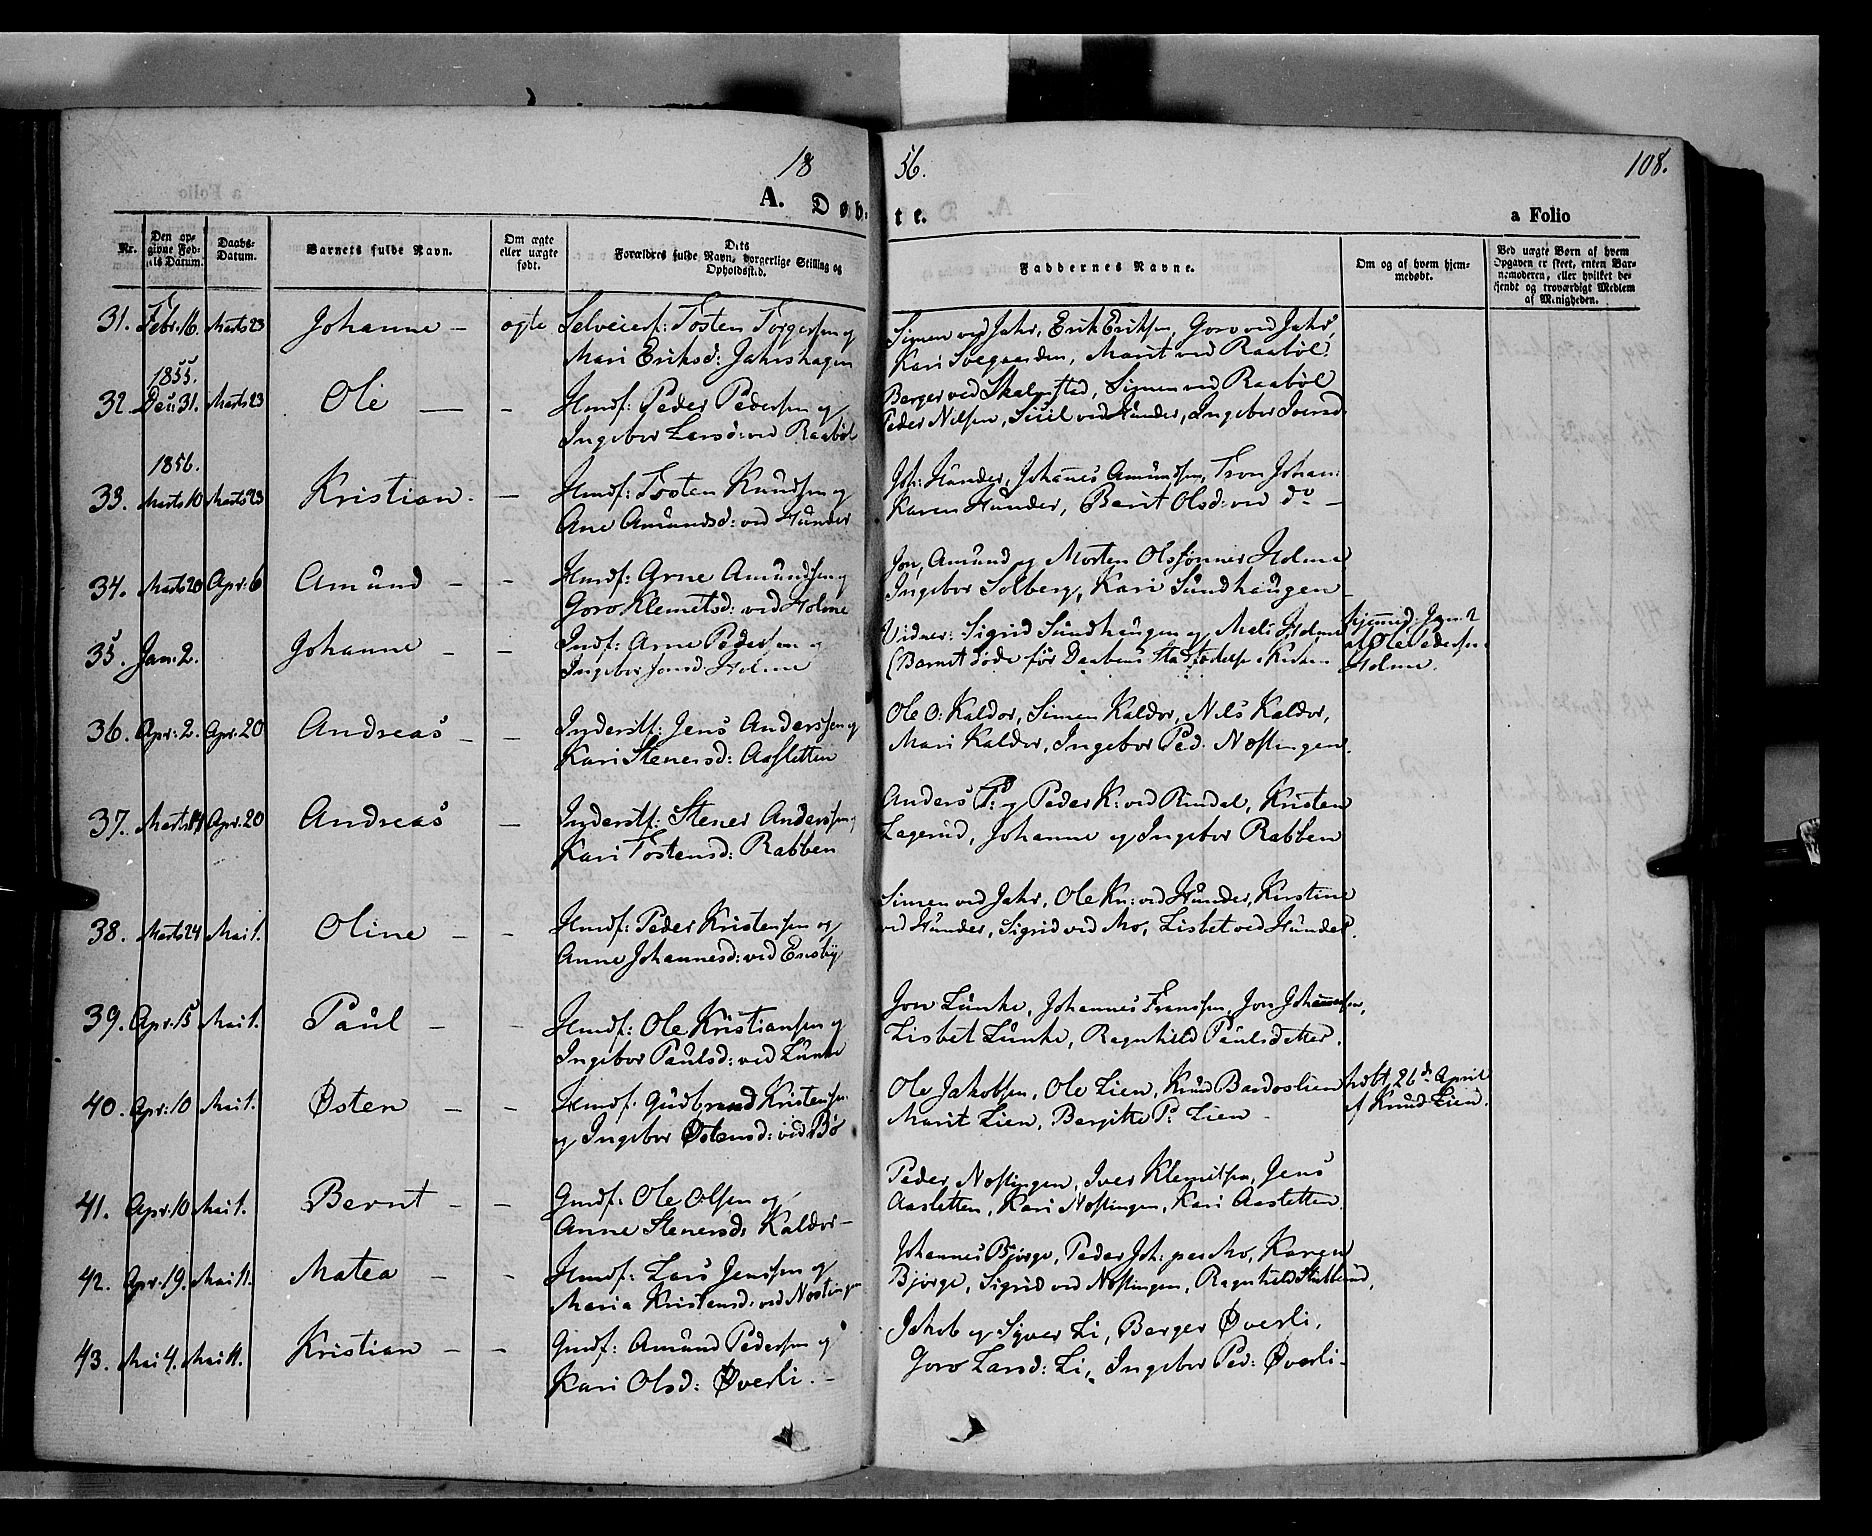 1856.
108.
A. Døbte.
a Folio
Nr.
Den opgivne Fødsels Datum.
Daabs-Datum.
Barnets fulde Navn.
Om ægte eller uægte født.
Dets Forældres fulde Navn, borgerlige Stilling og Opholdssted.
Faddernes Navne.
Om og af hvem hjemmedøbt.
Ved uægte Børn af hvem Opgaven er skeet, enten Barnemoderen, eller hvilket bekjendt og troværdigt Medlem af Menigheden.
31. Febr. 16. Marts 23 Johanne – ægte Selveierf: Tosten Torgersen og
Mari Eriksd: Jahrshagen
Simen ved Jahr, Erik Eriksen, Goro ved Jahr,
Kari Svegaarden, Marit ved Raabøl.
1855.
32. Dec: 31. Marts 23 Ole – – Hmdf: Peder Pedersen og
Ingebor Larsd: ved Raabøl
Berger ved Skalmstad, Simen ved Raabøl
Peder Nilsen, Sicil ved Hunder, Ingebor Iversd.
1856.
33. Marts 10 Marts 23 Kristian. – Hmdf: Tosten Knudsen og
Ane Amundsd: ved Hunder
Joh: Hunder, Johanes Amundsen, Tron Johan:
Karen Hunder, Berit Olsd: ved do –
34. Marts 20 Apr: 6 Amund – – Hmdf: Arne Amundsen og
Goro Klemetsd: ved Holme
Jon, Amund og Morten Olssønner Holme
Ingebor Solberg, Kari Sundhaugen
35. Jan: 2. Johanne – – Indf: Arne Pedersen og
Ingebor Jonsd: Holme
Vidner: Sigrid Sundhaugen og Mali Holme
(Barnet døde før Daabens Stadfæstelse i Kirken
hjemmed. Jan. 2
af Ole Pedersen
Holme.
36. Apr: 2. Apr: 20 Andreas – – Inderstf: Jens Anderssen og
Kari Stenersd: Aasletten
Ole O: Kaldor, Simen Kaldor, Nils Kaldor,
Mari Kaldor, Ingebor Ped: Nøstingen.
37. Marts 14 Apr: 20 Andreas – Inderstf: Stener Anderssen og
Kari Tostensd: Rabben
Anders P: og Peder K: ved Rindal, Kristen
Lagerud, Johanne og Ingebor Rabben
38. Marts 24 Mai 1. Oline – – Hmdf: Peder Kristensen og
Anne Johannesd: ved Ensby
Simen ved Jahr, Ole Kn: ved Hunder, Kirstine
ved Hunder, Sigrid ved Mo, Lisbet ved Hunder.
39. Apr: 15 Mai 1. Paul – – Hmdf: Ole Kristiansen og
Ingebor Paulsd: ved Lunke
Jon Lunke, Johannes Franssen, Jon Johannesen,
Lisbet Lunke, Ragnhild Paulsdatter.
40. Apr: 10 Mai 1. Østen – – Hmdf: Gudbrand Kristensen
og Ingebor Østensd: ved Bø
Ole Jakobsen, Ole Lien, Knud Bardoslien
Marit Lien, Bergitte P: Lien –
hdbt. 26de April
af Knud Lien.
41. Apr: 10 Mai 1. Bernt – – Gmdf: Ole Olsen og
Anne Stenersd: Kaldor –
Peder Nøstingen, Iver Klemetsen, Jens
Aasletten, Kari Nøstingen, Kari Aasletten.
42. Apr: 19. Mai 11. Matea – – Hmdf: Lars Jenssen og
Maria Kristensd: ved Nøstingen
Johannes Bjørge, Peder Joh: paa Mo, Karen
Bjørge, Sigrid ved Nøstingen, Ragnhild Stubberud,
43. Mai 4. Mai 11. Kristian – – Gmdf: Amund Pedersen og
Kari Olsd: Øverli. –
Jakob og Syver Li, Berger Øverli,
Goro Larsd: Li, Ingebor Ped: Øverli –